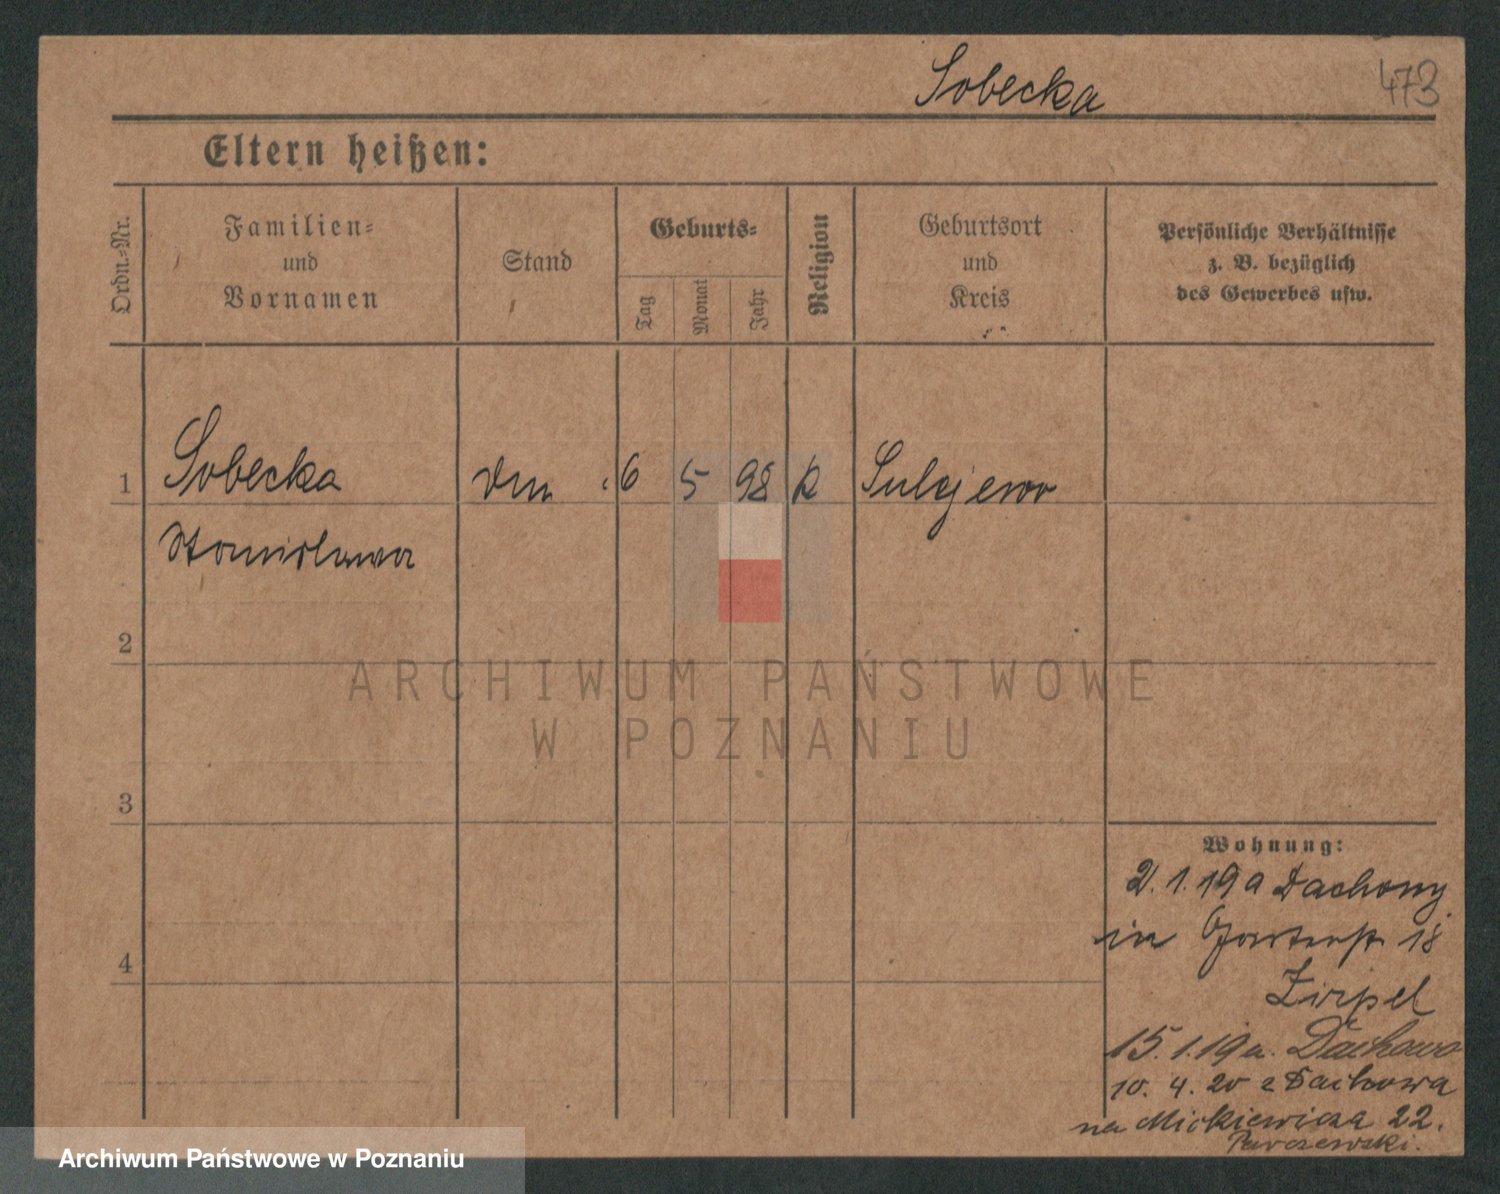 Sobecka 473
Eltern heißen:
Ordn.-Nr.
Familien=
und
Vornamen
Stand
Geburts=
Tag
Monat
Jahr
Religion
Geburtsort
und
Kreis
Persönliche Verhältnisse
z. B. bezüglich
des Gewerbes usw.
1 Sobecka 6 5 98 k Sulejewo
Stanislawa
2
3
4
Wohnung:
2.1.19 a Dachony
in Gartenstr 18
Zirpel
15.1.19 a. Dachowo
10. 4. 20 z Dachowa
na Mickiewicza 22.
Parczewski.
ARCHIWUM PAŃSTWOWE
W POZNANIU
Archiwum Państwowe w Poznaniu